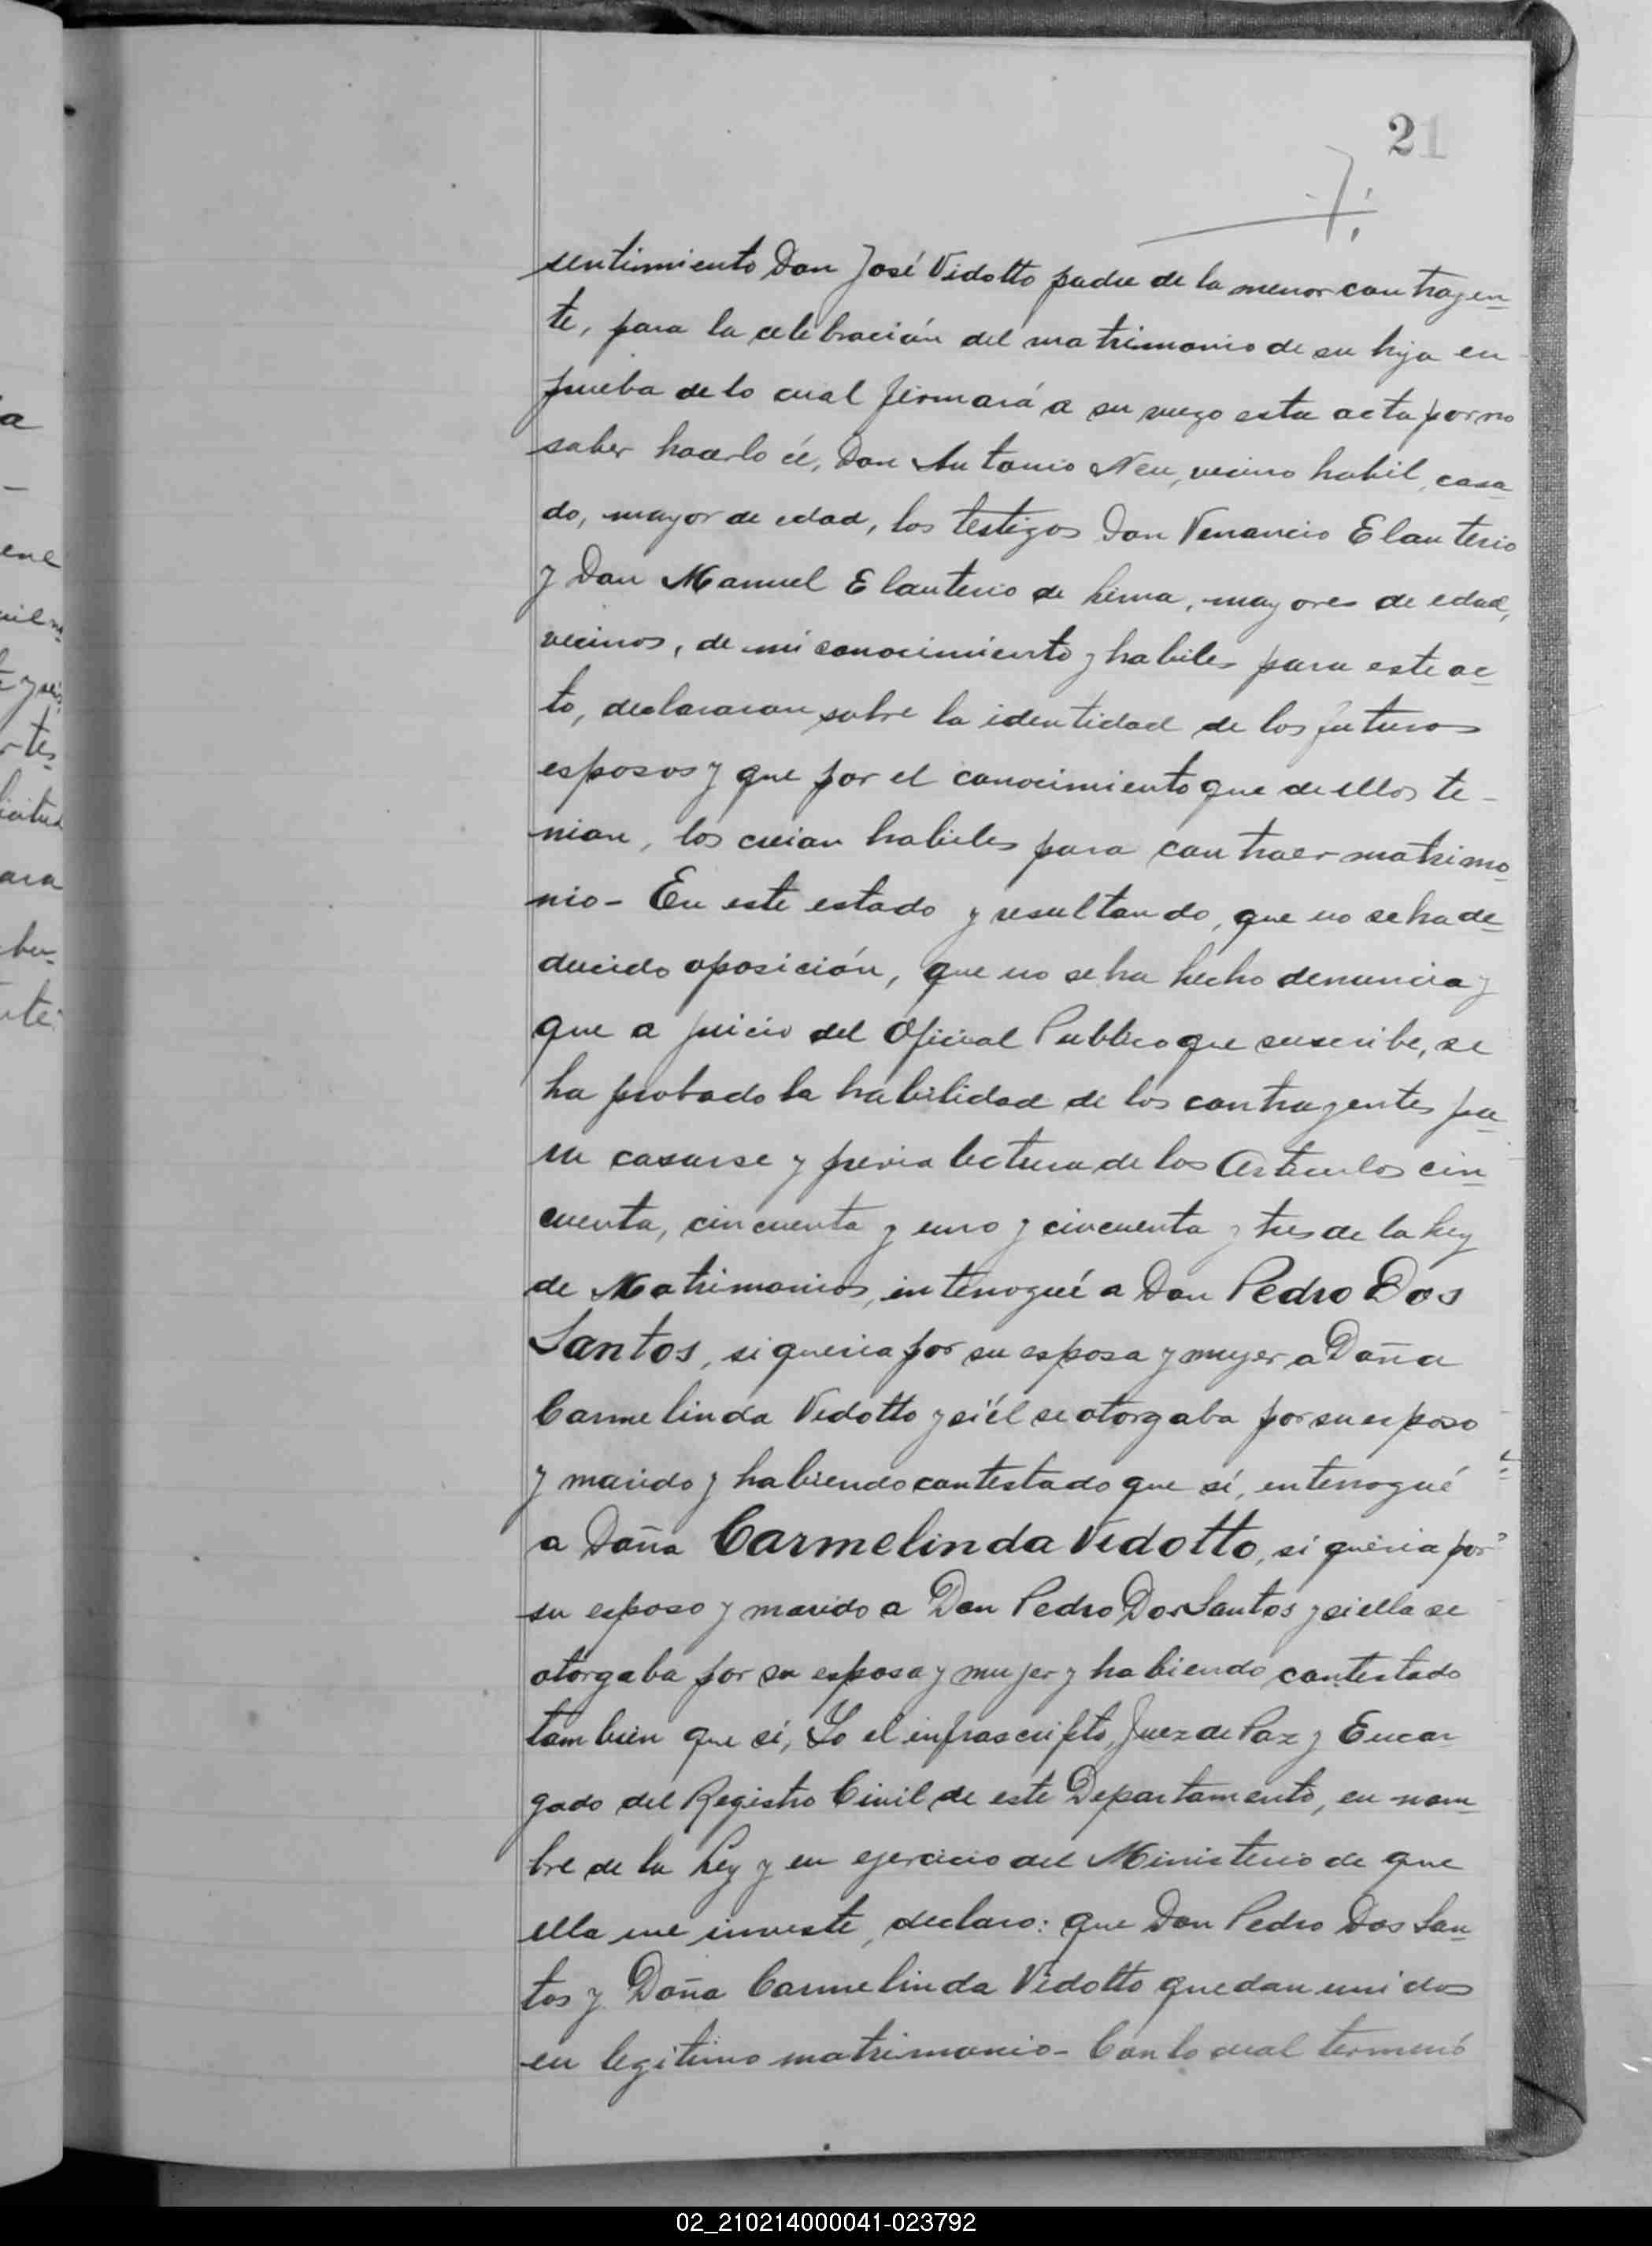 21
7.
sentimiento Don José Vidotto padre de la menor contrayen=
te, para la celebración del matrimonio de su hija en
prueba de lo cual firmará a su ruego esta acta por no
saber hacerlo él, Don Antonio Neu, vecino habil, casa=
do, mayor de edad, los testigos Don Venancio Elauterio
y Don Manuel Elauterio de Lima, mayores de edad,
vecinos, de mi conocimiento y habiles para este ac=
to, declararan sobre la identidad de los futuros
esposos y que por el conocimiento que de ellos te-
nian, los creian habiles para contraer matrimo=
nio- En este estado y resultando, que no se ha de=
ducido oposición, que no se ha hecho denuncia y
que a juicio del Oficial Publico que suscribe, se
ha probado la habilidad de los contrayentes pa=
ra casarse y previa lectura de los Articulos cin=
cuenta, cincuenta y uno y cincuenta y tres de la Ley
de Matrimonios, interrogué a Don Pedro Dos
Santos, si queria por su esposa y mujer a Doña
Carmelinda Vidotto y si él se otorgaba por su esposo
y marido y habiendo contestado que sí, enterrogué
a Doña Carmelinda Vidotto, si queria por
su esposo y marido a Don Pedro Dos Santos y si ella se
otorgaba por su esposa y mujer y habiendo contestado
tambien que sí, Yo el infrascripto, Juez de Paz y Encar
gado del Registro Civil de este Departamento, en nom=
bre de la Ley y en ejercicio del Ministerio de que
ella me investe, declaro: que Don Pedro Dos San=
tos y Doña Carmelinda Vidotto quedan unidos
en legitimo matrimonio- Con lo cual terminó
02_210214000041-023792